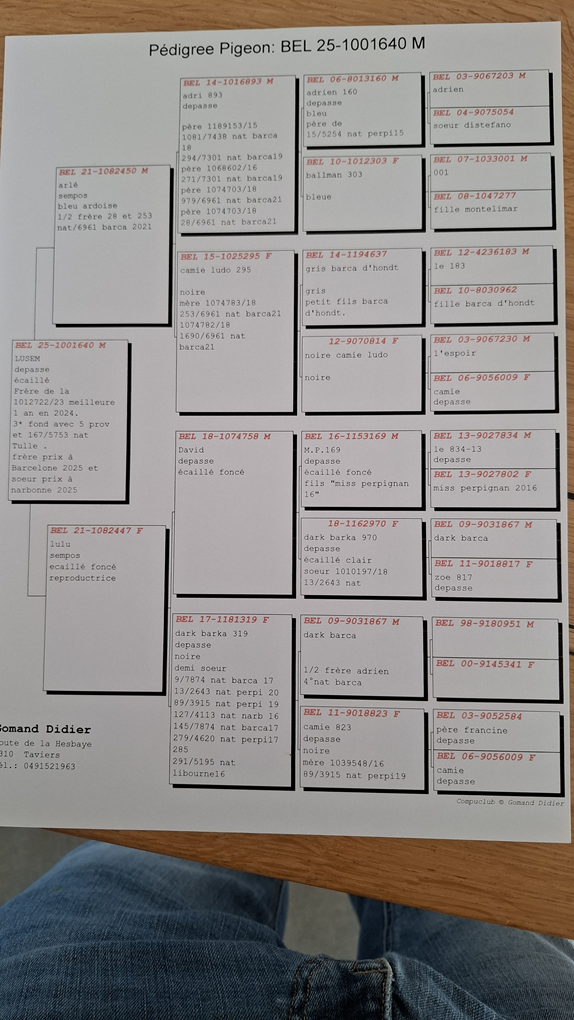 Pédigree Pigeon: BEL 25-1001640 M
BEL 25-1001640 M
LUSEM
depasse
écaillé
Frère de la
1012722/23 meilleure
1 an en 2024.
3* fond avec 5 prov
et 167/5753 nat
Tulle .
frère prix à
Barcelone 2025 et
soeur prix à
narbonne 2025
BEL 21-1082450 M
arlé
sempos
bleu ardoise
1/2 frère 28 et 253
nat/6961 barca 2021
BEL 21-1082447 F
lulu
sempos
ecaillé foncé
reproductrice
BEL 14-1016893 M
adri 893
depasse
père 1189153/15
1081/7438 nat barca
18
294/7301 nat barca19
père 1068602/16
271/7301 nat barca19
père 1074703/18
979/6961 nat barca21
père 1074703/18
28/6961 nat barca21
BEL 15-1025295 F
camie ludo 295
noire
mère 1074783/18
253/6961 nat barca21
1074782/18
1690/6961 nat
barca21
BEL 18-1074758 M
David
depasse
écaillé foncé
BEL 17-1181319 F
dark barka 319
depasse
noire
demi soeur
9/7874 nat barca 17
13/2643 nat perpi 20
89/3915 nat perpi 19
127/4113 nat narb 16
145/7874 nat barca17
279/4620 nat perpi17
285
291/5195 nat
libourne16
BEL 06-8013160 M
adrien 160
depasse
bleu
père de
15/5254 nat perpi15
BEL 10-1012303 F
ballman 303
bleue
BEL 14-1194637
gris barca d'hondt
gris
petit fils barca
d'hondt.
12-9070814 F
noire camie ludo
noire
BEL 16-1153169 M
M.P.169
depasse
écaillé foncé
fils "miss perpignan
16"
18-1162970 F
dark barka 970
depasse
écaillé clair
soeur 1010197/18
13/2643 nat
BEL 09-9031867 M
dark barca
1/2 frère adrien
4°nat barca
BEL 11-9018823 F
camie 823
depasse
noire
mère 1039548/16
89/3915 nat perpi19
BEL 03-9067203 M
adrien
BEL 04-9075054
soeur distefano
BEL 07-1033001 M
001
BEL 08-1047277
fille montelimar
BEL 12-4236183 M
le 183
BEL 10-8030962
fille barca d'hondt
BEL 03-9067230 M
l'espoir
BEL 06-9056009 F
camie
depasse
BEL 13-9027834 M
le 834-13
depasse
BEL 13-9027802 F
miss perpignan 2016
BEL 09-9031867 M
dark barca
BEL 11-9018817 F
zoe 817
depasse
BEL 98-9180951 M
BEL 00-9145341 F
BEL 03-9052584
père francine
depasse
BEL 06-9056009 F
camie
depasse
Gomand Didier
oute de la Hesbaye
310 Taviers
él.: 0491521963
Compuclub © Gomand Didier